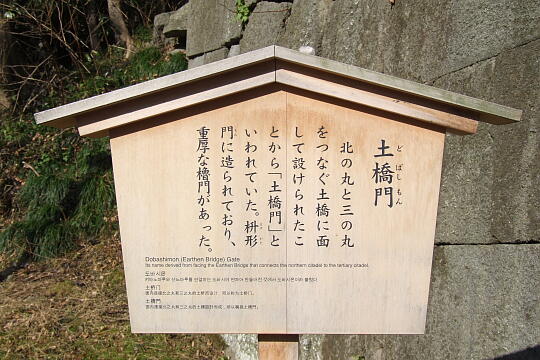 土橋門
ど ばし もん
北の丸と三の丸
をつなぐ土橋に面
して設けられたこ
とから「土橋門」と
いわれていた。枡形
門に造られており、
重厚な櫓門があった。
Dobashimon (Earthen Bridge) Gate
Its name derived from facing the Earthen Bridge that connects the northern citadel to the tertiary citadel.
도바시몬
土桥门
土橋門